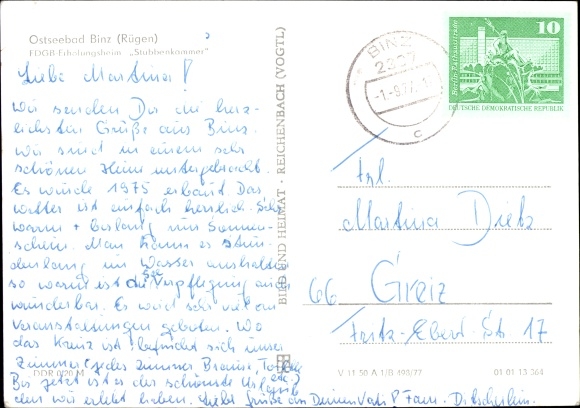 Ostseebad Binz (Rügen)
FDGB-Erholungsheim „Stubbenkammer"
Liebe Martina!
Wir senden Dir die herz-
lichsten Grüße aus Binz.
Wir sind in einem sehr
schönen Heim untergebracht.
Es wurde 1975 erbaut. Das
Wetter ist einfach herrlich. Sehr
warm + bislang nur Sonnen-
schein. Man kann es stun-
denlang im Wasser aushalten
so warm ist die See. Verpflegung auch
wunderbar. Es wird sehr viel an
Veranstaltungen geboten. Wo
das Kreuz ist befindet sich unser
Zimmer (jedes Zimmer Brause,
Bis jetzt ist es der schönste
den wir erlebt haben. Liebe Grüße an Deinen Vati! Fam.
BILD UND HEIMAT · REICHENBACH (VOGTL)
BINZ
2337
-1.-9.77
c
10
Berlin, Rathausstraße
DEUTSCHE DEMOKRATISCHE REPUBLIK
Frl.
Martina Dietz
66 Greiz
Fritz-Ebert-Str. 17
DDR 0,20 M
V 11 50 A 1/B 493/77
01 01 13 364